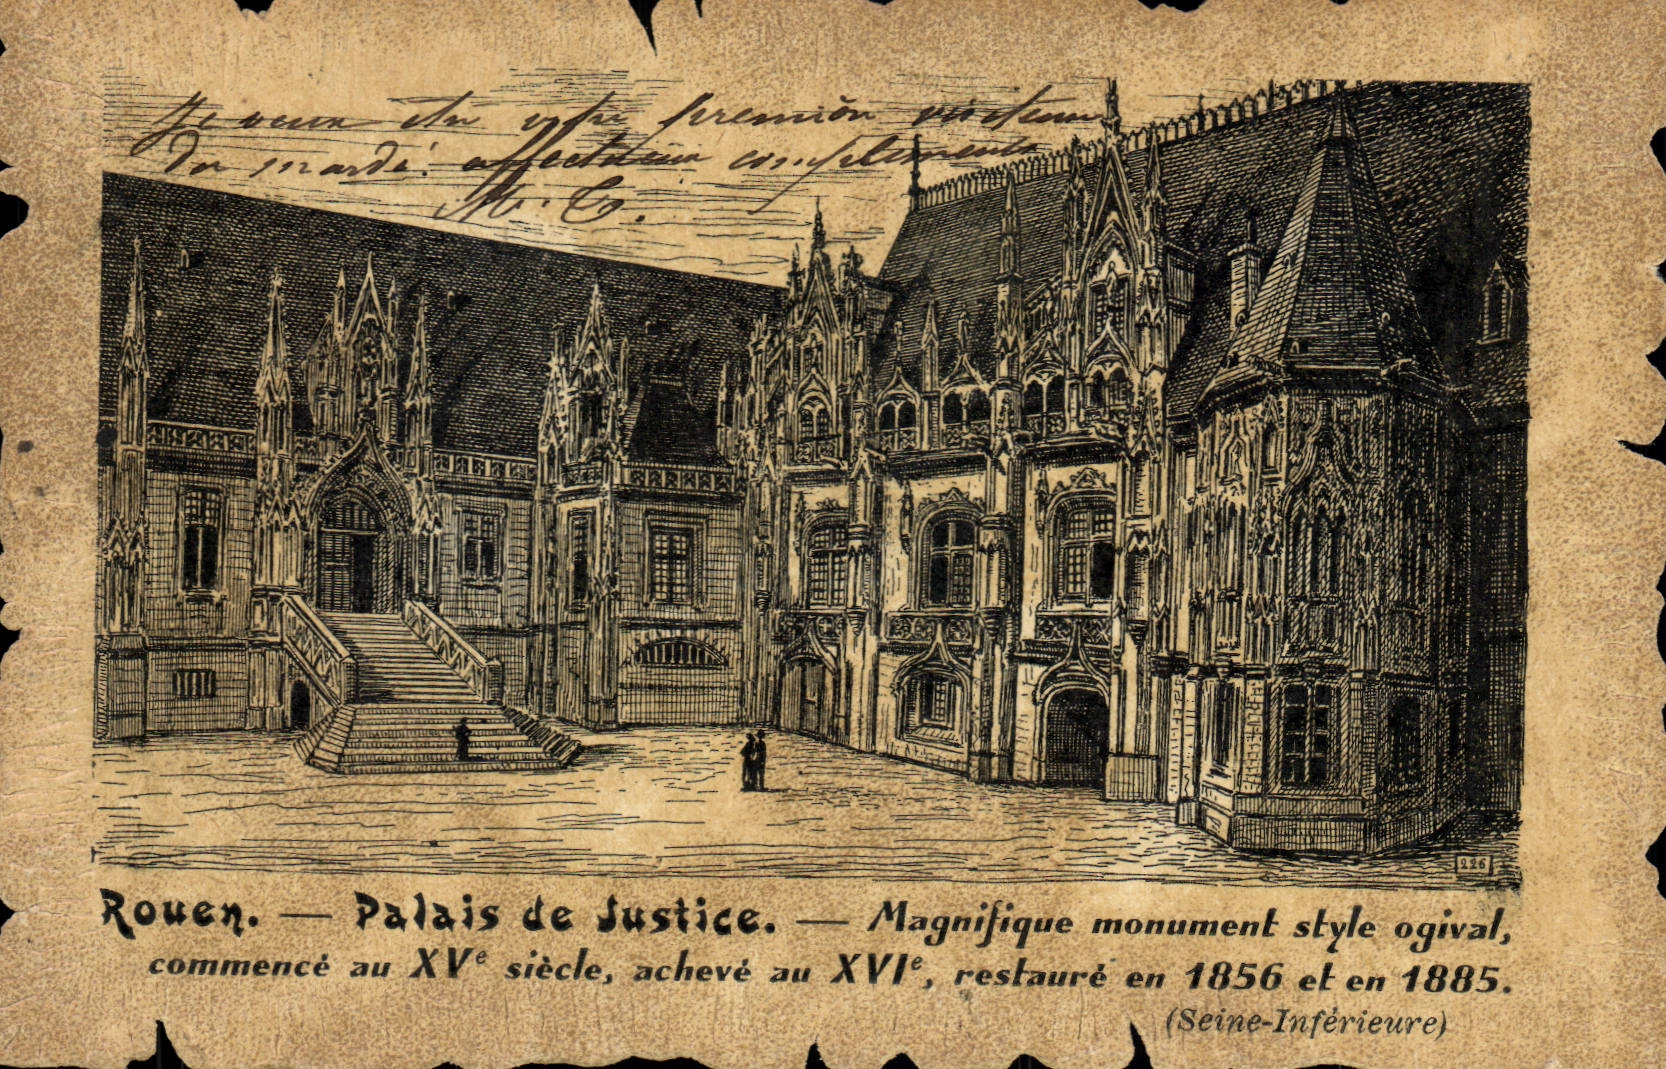 Je veux être votre premièr visiteur
du mardi! affectueux compliments
M. C.
226
Rouen. — Palais de Justice. — Magnifique monument style ogival,
commencé au XVe siècle, achevé au XVIe, restauré en 1856 et en 1885.
(Seine-Inférieure)